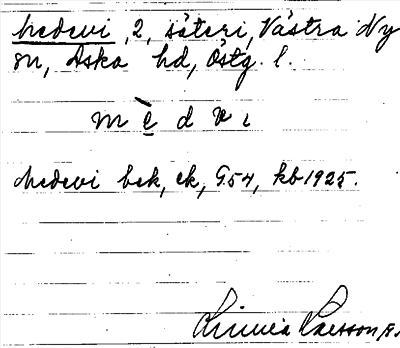 Medevi, 2, säteri, Västra Ny
sn, Aska hd, Östg. l.
m è d v i
Medevi bek, ek, G.54, kb 1925.
Linnéa Larsson